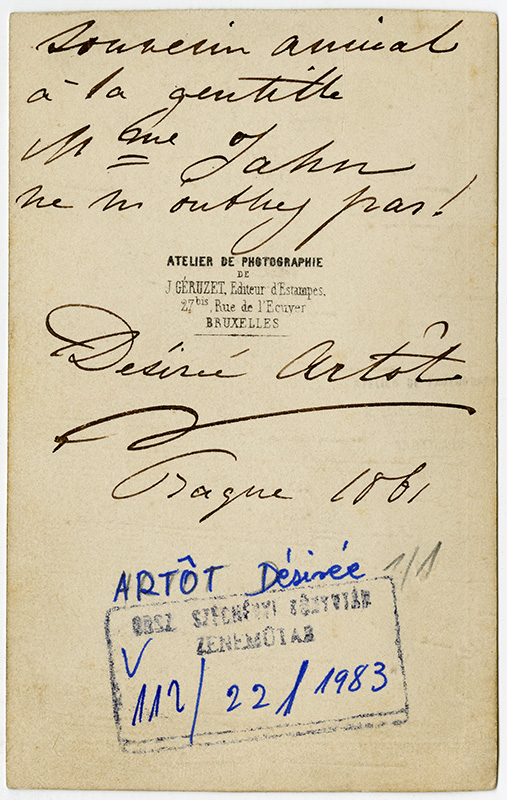 souvenir amical
à la gentille
Mme Jahn
ne m'oubliez pas!
ATELIER DE PHOTOGRAPHIE
DE
J. GÉRUZET, Editeur d'Estampes,
27bis, Rue de l'Ecuyer
BRUXELLES
Désirée Artôt
Prague 1861
ARTÔT Désirée 1/1
ORSZ. SZÉCHÉNYI KÖNYVTÁR
ZENEMŰTÁR
V
112/22/1983